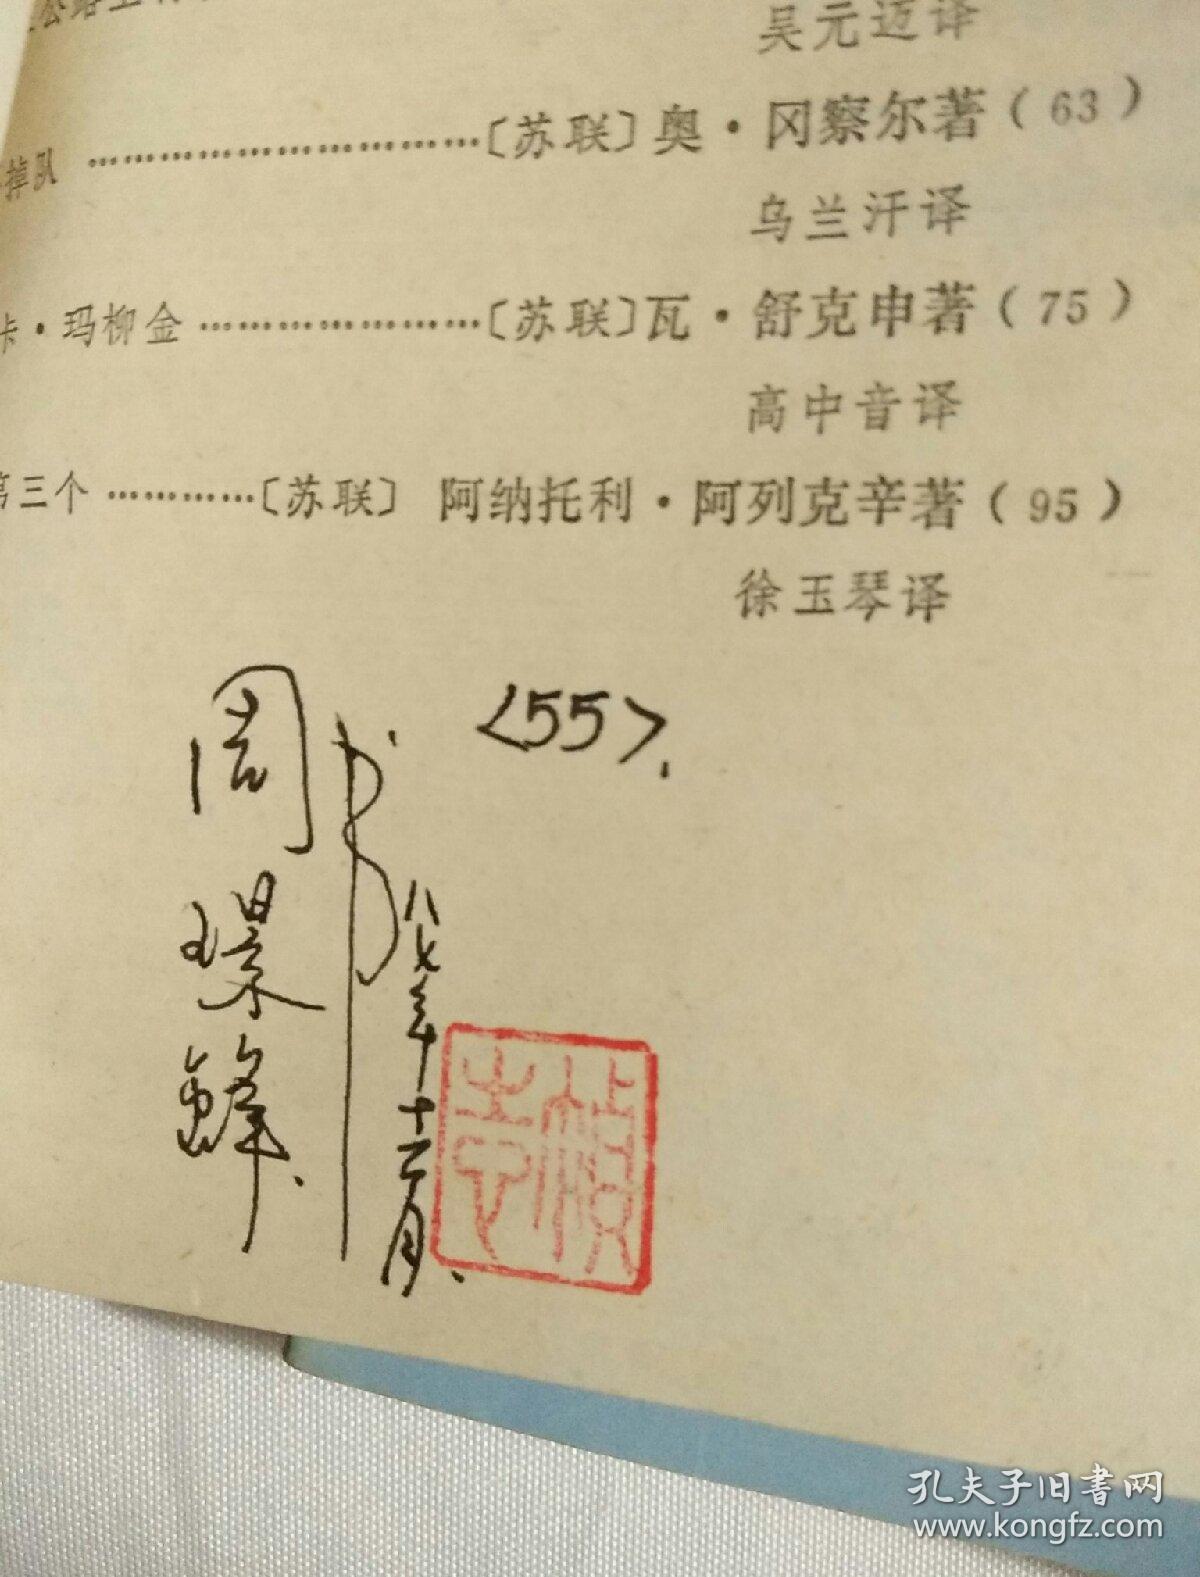 吴元迈译
掉队 ……………………………〔苏联〕奥·冈察尔著(63)
乌兰汗译
卡·玛柳金 ……………………〔苏联〕瓦·舒克申著(75)
高中音译
第三个 …………〔苏联〕 阿纳托利·阿列克辛著(95)
徐玉琴译
<55>.
周璟锋书
八七年十二月.
孔夫子旧书网
www.kongfz.com